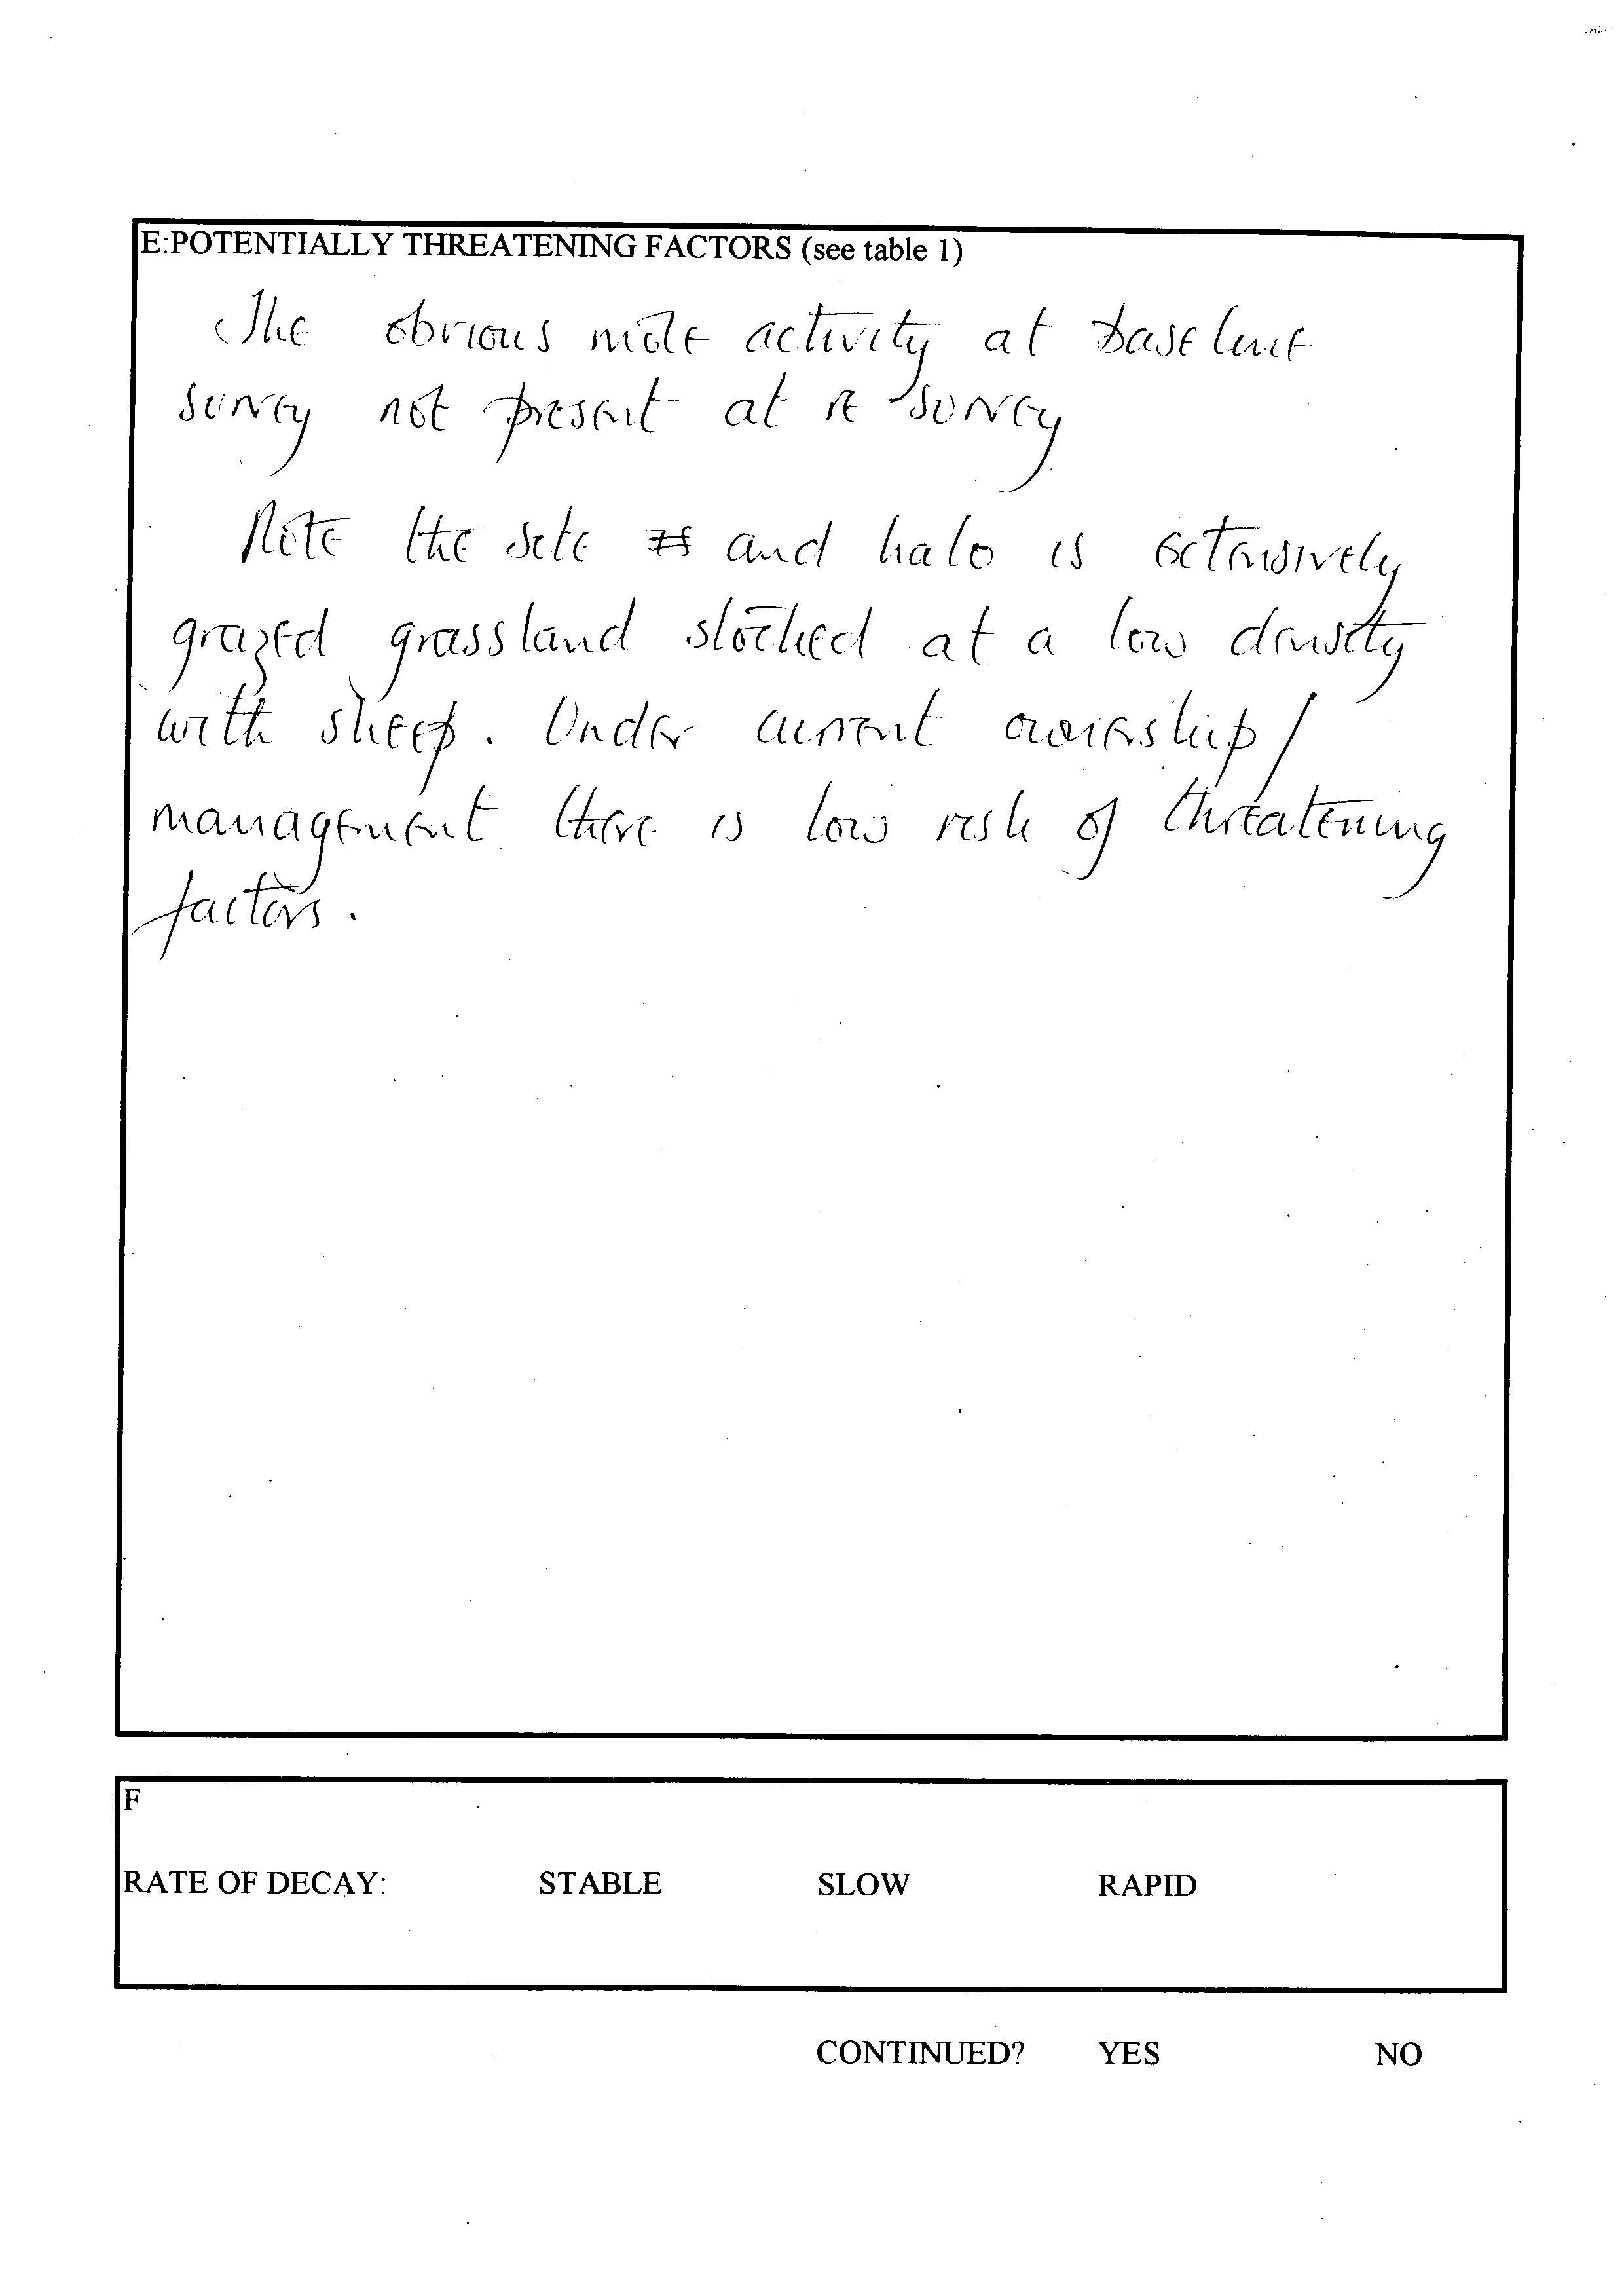 E:POTENTIALLY THREATENING FACTORS (see table 1)
The obvious mole activity at baseline
survey not present at re survey
Note the site and halo is extensively
grazed grassland stocked at a low density
with sheep. Under current ownership/
management there is low risk of threatening
factors.
F
RATE OF DECAY: STABLE SLOW RAPID
CONTINUED? YES NO